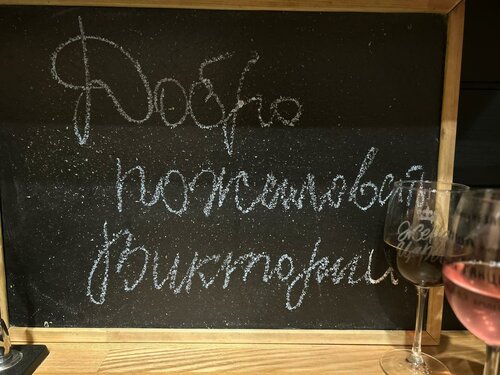 Добро
пожаловать
Виктория